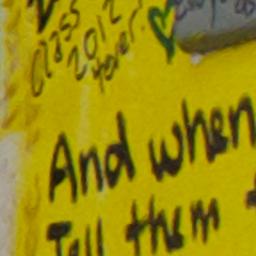 Class
2012
4ever!
And when
Tell them